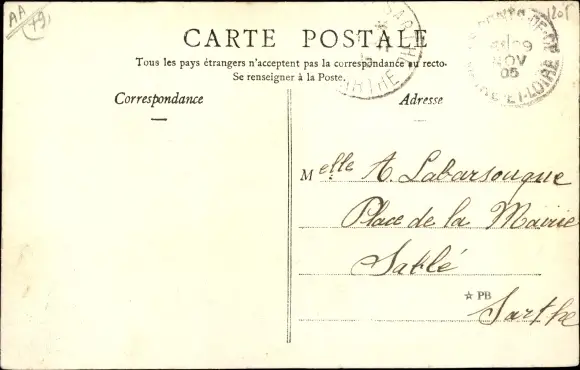 AA
79
1205
CARTE POSTALE
Tous les pays étrangers n'acceptent pas la correspondance au recto.
Se renseigner à la Poste.
Correspondance
Adresse
29
NOV
05
Melle A. Labarsouque
Place de la Mairie
Sablé
☆ PB
Sarthe